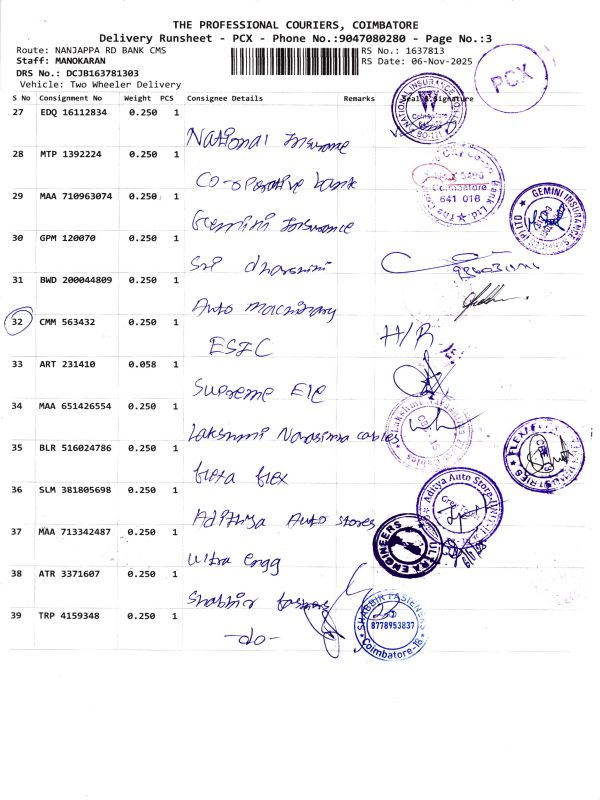 THE PROFESSIONAL COURIERS, COIMBATORE
Delivery Runsheet - PCX - Phone No.:9047080280 - Page No.:3
Route: NANJAPPA RD BANK CMS RS No.: 1637813
Staff: MANOKARAN RS Date: 06-Nov-2025
DRS No.: DCJB163781303
Vehicle: Two Wheeler Delivery
PCX
S No Consignment No Weight PCS Consignee Details Remarks Seal & Signature
27 EDQ 16112834 0.250 1
National Insurance
28 MTP 1392224 0.250 1
Co-operative bank
Coimbatore
641 018
29 MAA 710963074 0.250 1
Gemini Insurance
GEMINI INSURANCE
30 GPM 120070 0.250 1
Sri dharshini
31 BWD 200044809 0.250 1
Auto machinary
32 CMM 563432 0.250 1
ESIC H/R
33 ART 231410 0.058 1
Supreme Ele
34 MAA 651426554 0.250 1
Lakshmi Narasima cables
35 BLR 516024786 0.250 1
flexa flex
36 SLM 381805698 0.250 1
Adithya Auto stores
Aditya Auto Store
37 MAA 713342487 0.250 1
Ultra engg
ULTRA ENGINEERS
38 ATR 3371607 0.250 1
Shabbir fasners
39 TRP 4159348 0.250 1
-do-
SHABBIR FASTENERS
8778953837
Coimbatore-18